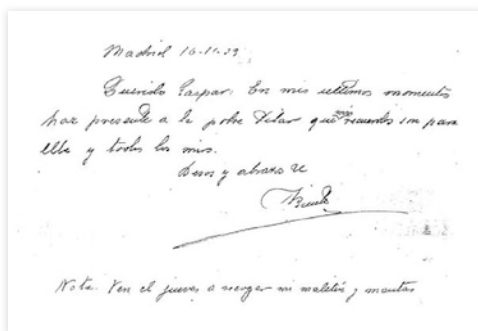 Madrid 16-11-39
Querido Gaspar: En mis ultimos momentos
haz presente a la pobre Pilar que mis recuerdos son para
ella y todos los mios.
Besos y abrazos de
Vicente
Nota. Ven el jueves a recoger mi maletin y mantas